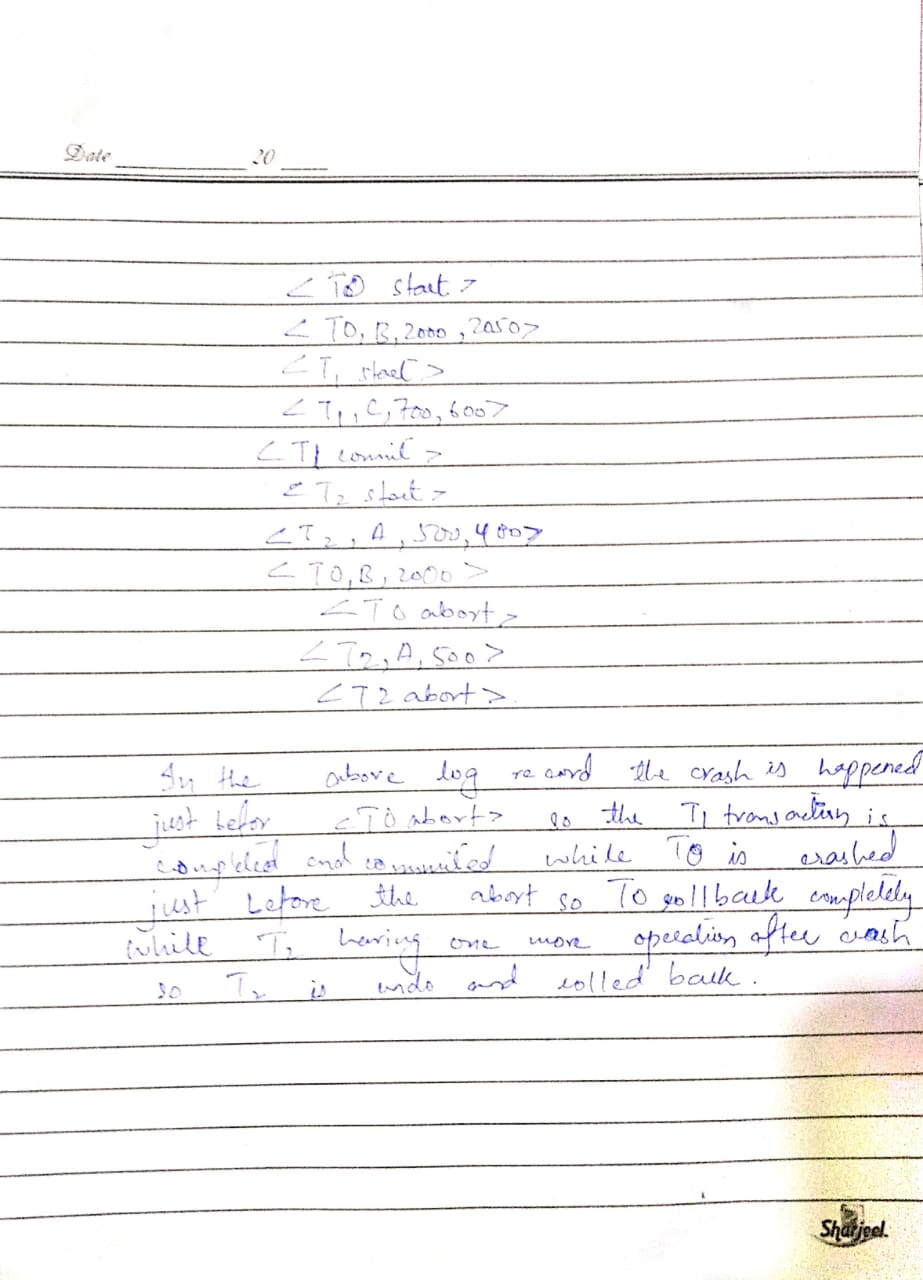 Date 20
< T0 start >
< T0, B, 2000, 2050>
< T1 start >
< T1, C, 700, 600>
< T1 commit >
< T2 start >
< T2, A, 500, 400>
< T0, B, 2000 >
< T0 abort >
< T2, A, 500 >
< T2 abort >.
In the above log record the crash is happened
just befor < T0 abort > so the T1 transaction is
completed and commited while T0 is crashed
just before the abort so T0 rollback completely
while T2 having one more operation after crash
so T2 is undo and rolled back.
Sharjeel.